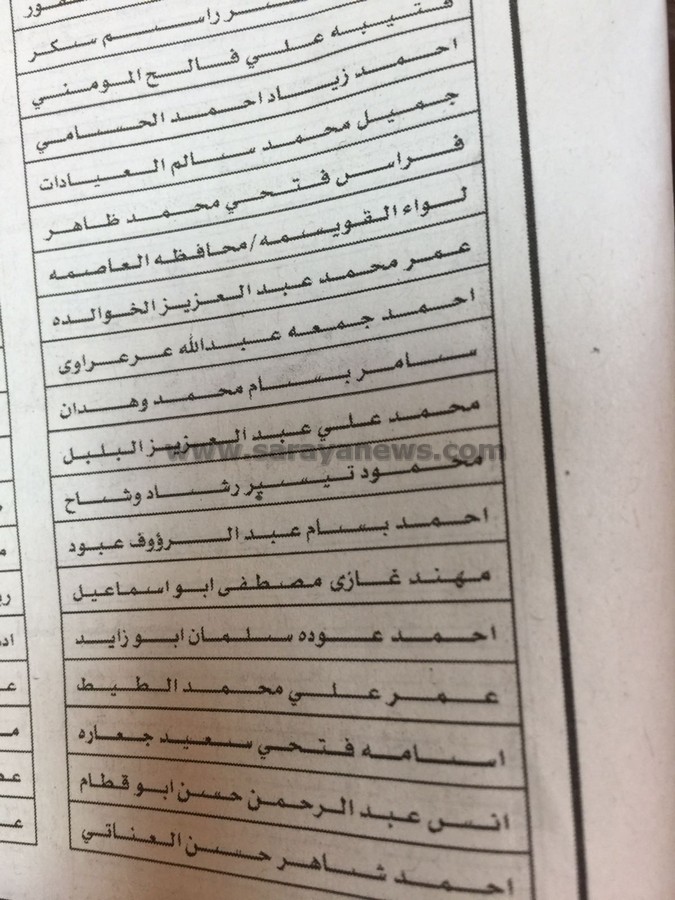 راسم سكر
قتيبه علي فالح المومني
احمد زياد احمد الحسامي
جميل محمد سالم العيادات
فراس فتحي محمد ظاهر
لواء القويسمه/محافظه العاصمه
عمر محمد عبد العزيز الخوالده
احمد جمعه عبدالله عرعراوى
سامر بسام محمد وهدان
محمد علي عبد العزيز البلبل
www.sarayanews.com
محمود تيسير رشاد وشاح
احمد بسام عبد الرؤوف عبود
مهند غازى مصطفى ابو اسماعيل
احمد عوده سلمان ابو زايد
عمر علي محمد الطيط
اسامه فتحي سعيد جعاره
انس عبد الرحمن حسن ابو قطام
احمد شاهر حسن العناتي